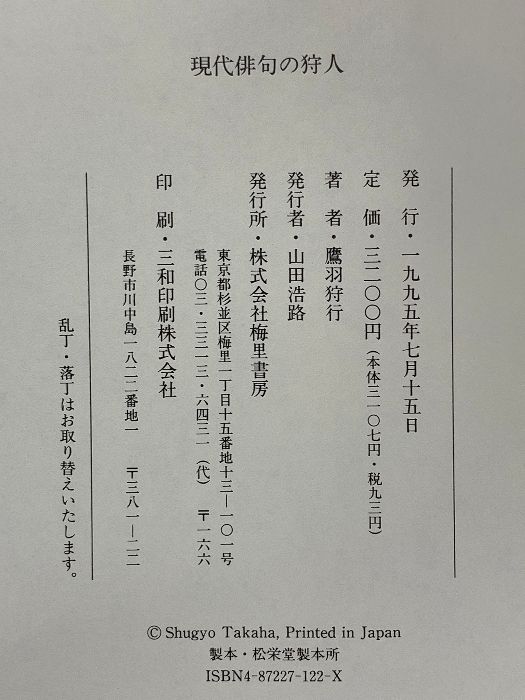 現代俳句の狩人
発　行・一九九五年七月十五日
定　価・三二〇〇円（本体三一〇七円・税九三円）
著　者・鷹羽狩行
発行者・山田浩路
発行所・株式会社梅里書房
東京都杉並区梅里一丁目十五番地十三―一〇一号
電話〇三・三三一三・六四三一（代）　〒一六六
印　刷・三和印刷株式会社
長野市川中島一八二二番地一　〒三八一―二二
乱丁・落丁はお取り替えいたします。
© Shugyo Takaha, Printed in Japan
製本・松栄堂製本所
ISBN4-87227-122-X